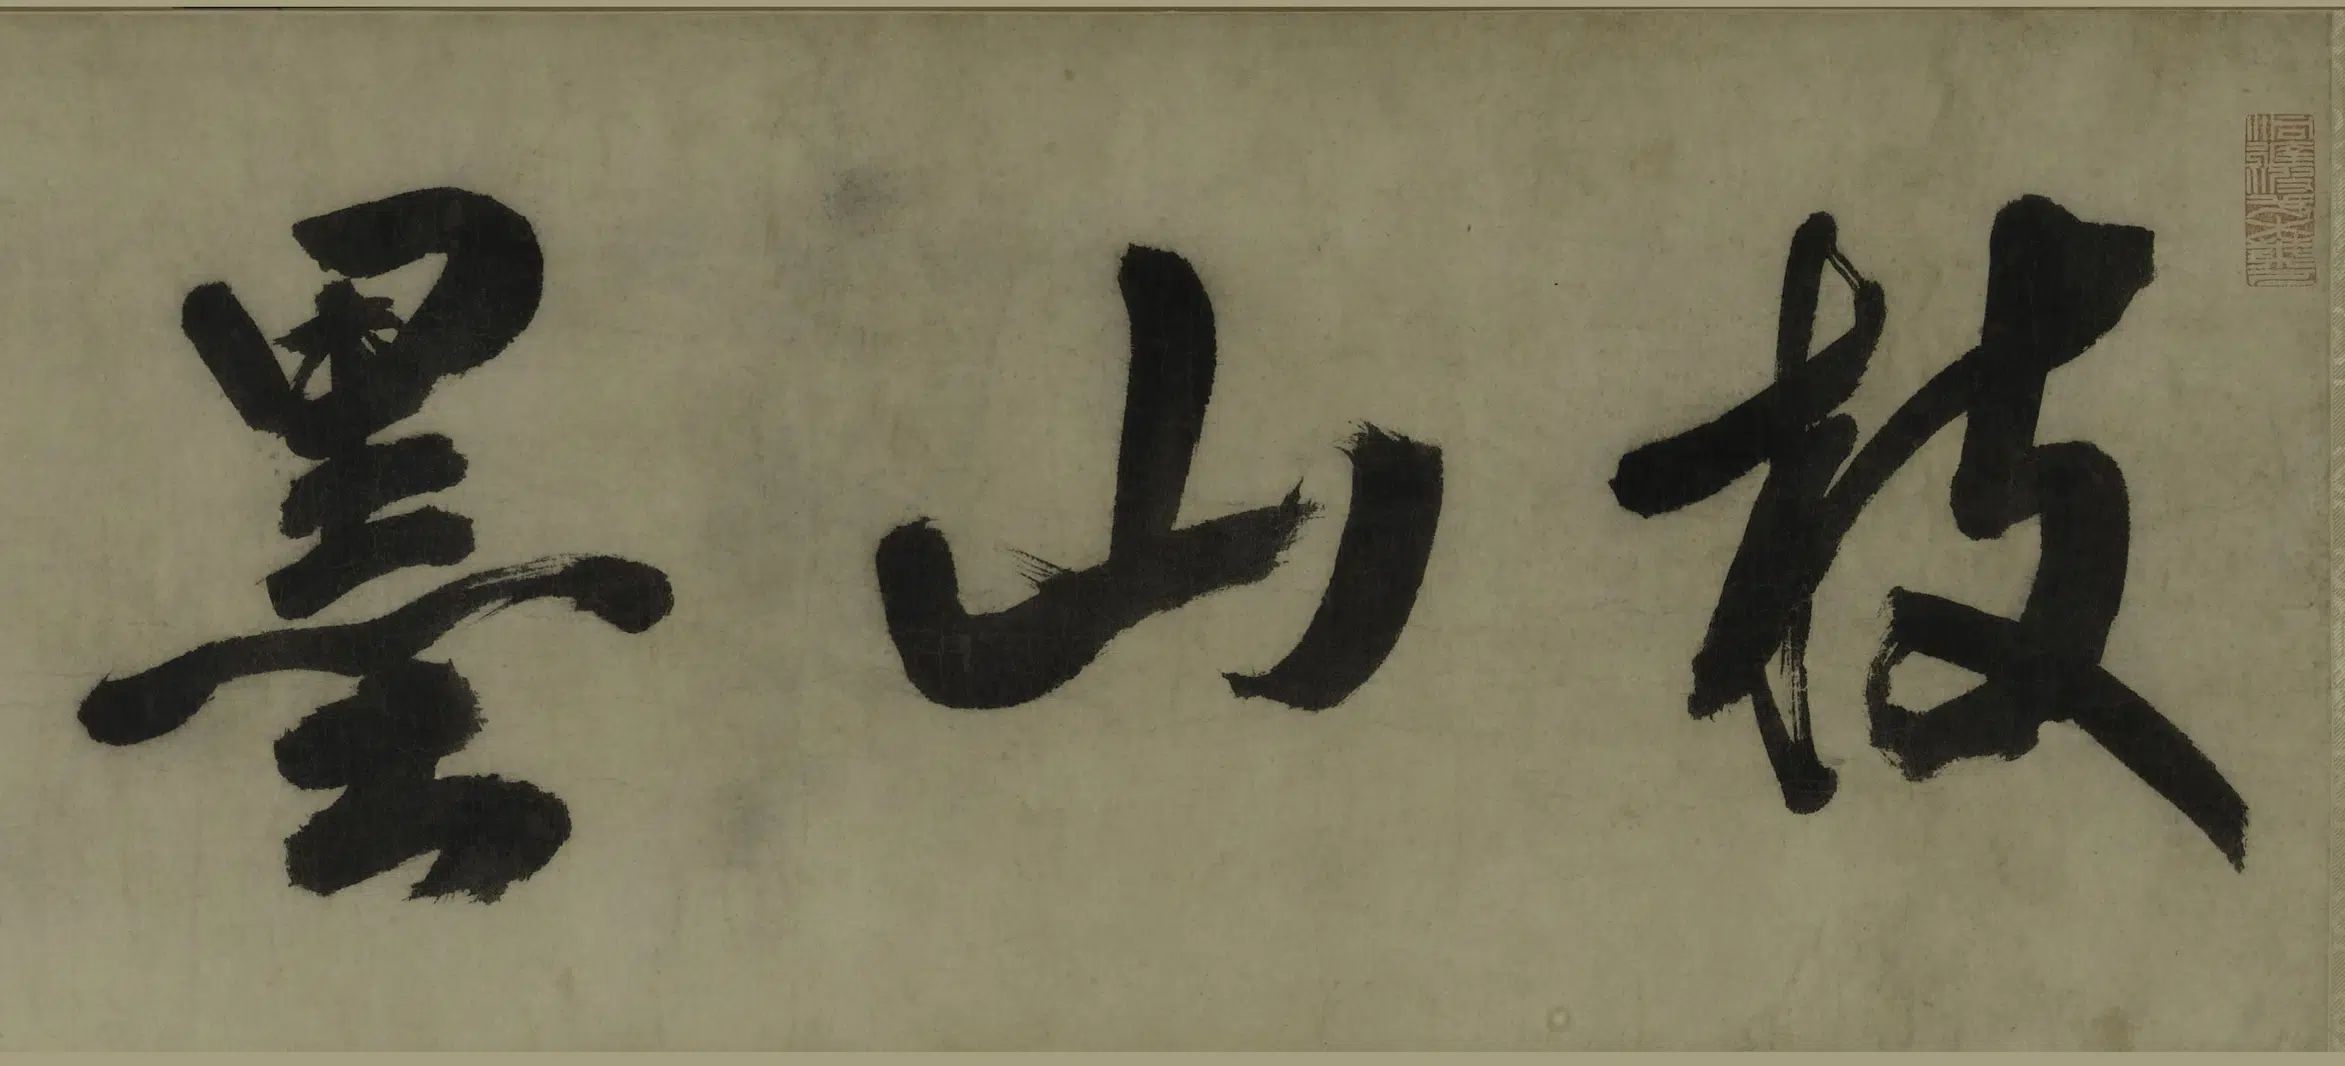 枝山墨